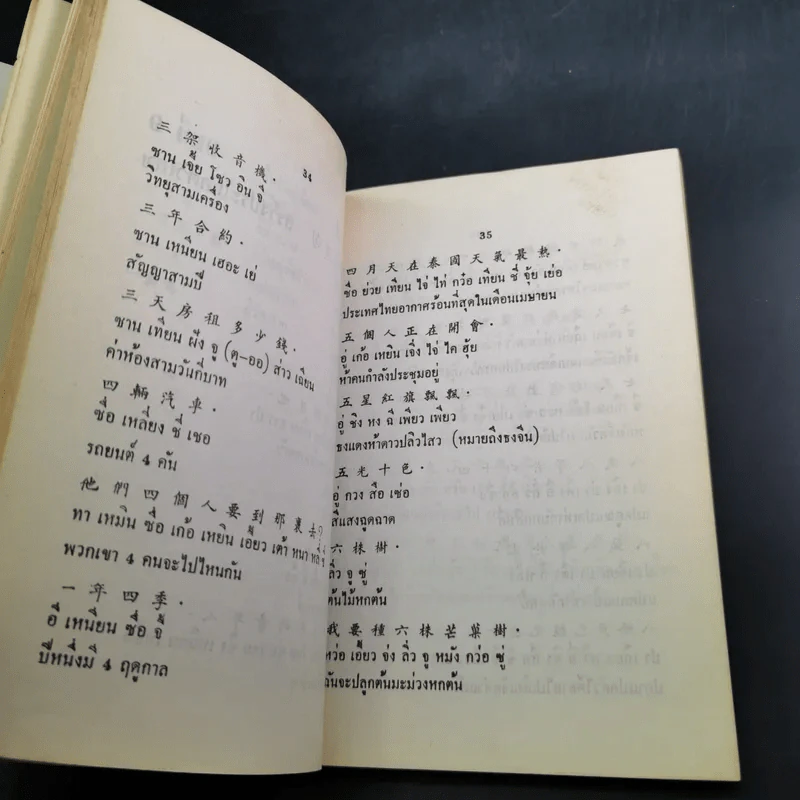 34
三架收音機.
ซาน เจี้ย โซว อิน จี
วิทยุสามเครื่อง
三年合約.
ซาน เหนียน เฮอะ เย่
สัญญาสามปี
三天房租多少錢.
ซาน เทียน ฝัง จู (ตู-ออ) ส่าว เฉียน
ค่าห้องสามวันกี่บาท
四輛汽車.
ซื่อ เหลี่ยง ชี่ เชอ
รถยนต์ 4 คัน
他們四個人要到那裏去
ทา เหมิน ซื่อ เก้อ เหยิน เอี้ยว เต้า หนา
พวกเขา 4 คนจะไปไหนกัน
一年四季.
อี เหนียน ซื่อ จี้
ปีหนึ่งมี 4 ฤดูกาล
35
四月天在泰國天氣最熱.
ซื่อ ย่วย เทียน ไจ่ ไท่ กว๋อ เทียน ชี่ จุ้ย เย่อ
ประเทศไทยอากาศร้อนที่สุดในเดือนเมษายน
五個人正在開會.
อู่ เก้อ เหยิน เจิ้ง ไจ่ ไค ฮุ้ย
ห้าคนกำลังประชุมอยู่
五星紅旗飄飄.
อู่ ชิง หง ฉี เพียว เพียว
ธงแดงห้าดาวปลิวไสว (หมายถึงธงจีน)
五光十色.
อู่ กวง สือ เซ่อ
สีแสงฉูดฉาด
六株樹.
ลิ่ว จู ซู่
ต้นไม้หกต้น
我要種六株芒菓樹.
หว่อ เอี้ยว จ่ง ลิ่ว จู หมัง กว่อ ซู่
ฉันจะปลูกต้นมะม่วงหกต้น